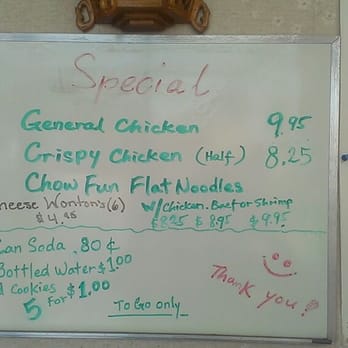 Special
General Chicken 9.95
Crispy Chicken (Half) 8.25
Chow Fun Flat Noodles
heese Wontons (6) W/ Chicken. Beef or Shrimp
$4.95 $8.25 $8.95 $9.95
Can Soda .80¢
Bottled Water $1.00
Cookies $1.00
5 For
To Go only
Thank you!